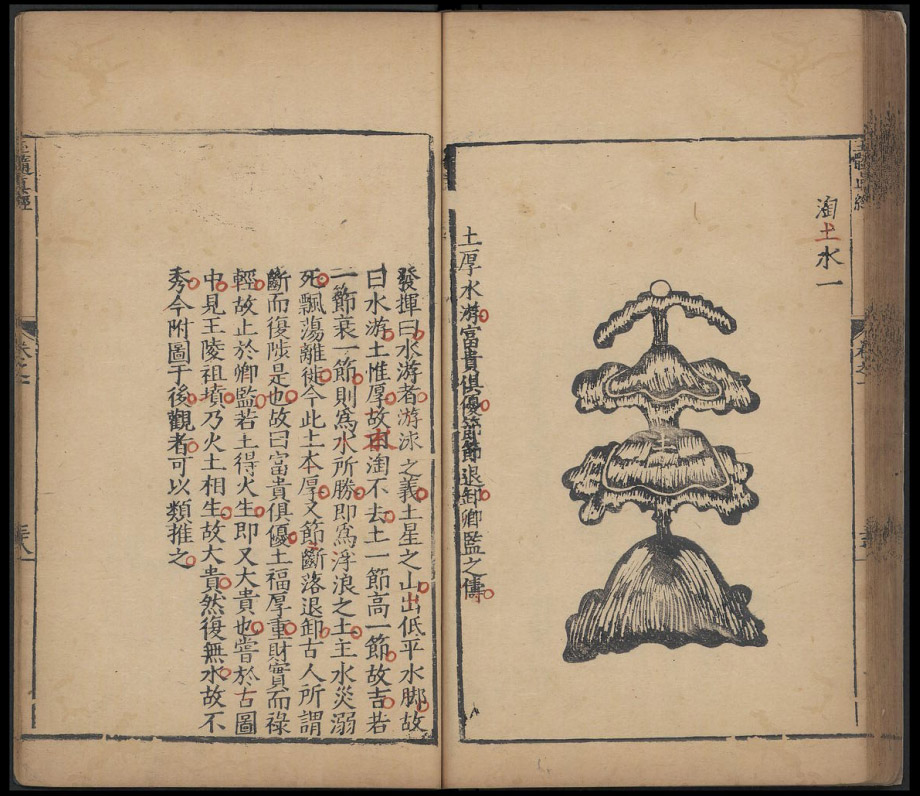 淘土水一
土厚水游富貴俱優節節退卸卿監之儔
發揮曰水游者游泳之義土星之山出低平水腳故
曰水游土惟厚故由淘不去土一節高一節故吉若
一節衰一節則爲水所勝即爲浮浪之土主水災溺
死飄蕩離徙今此土本厚又節斷落退卸古人所謂
斷而復陟是也故曰富貴俱優土福厚重財寳而祿
輕故止於卿監若土得火生即又大貴也嘗於古圖
中見王陵祖墳乃火土相生故大貴然復無水故不
秀今附圖于後觀者可以類推之
玉髓真經